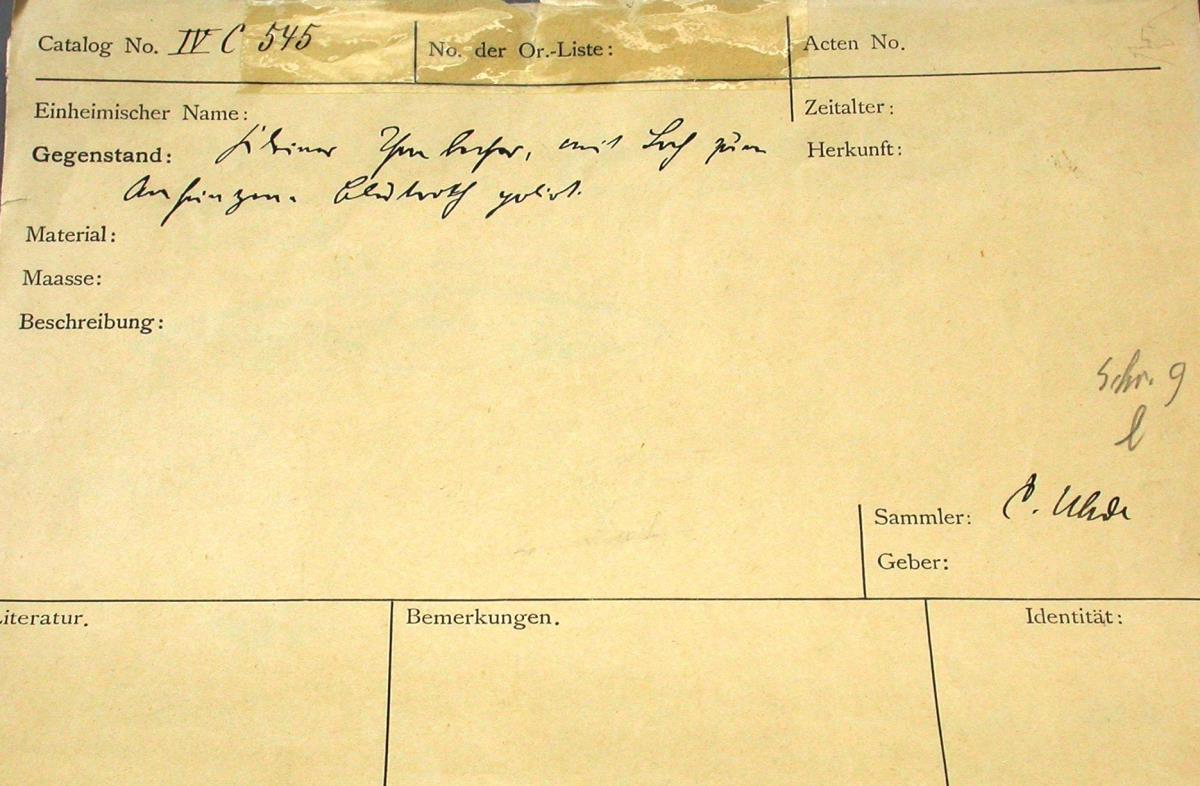 Catalog No. IV C 545
No. der Or.-Liste:
Acten No.
Einheimischer Name:
Zeitalter:
Gegenstand: kleiner Thonbecher, mit Loch zum
Herkunft:
Anhängen. blutroth polirt.
Material:
Maasse:
Beschreibung:
Schr. 9
l
Sammler: C. Uhde
Geber:
Literatur.
Bemerkungen.
Identität: